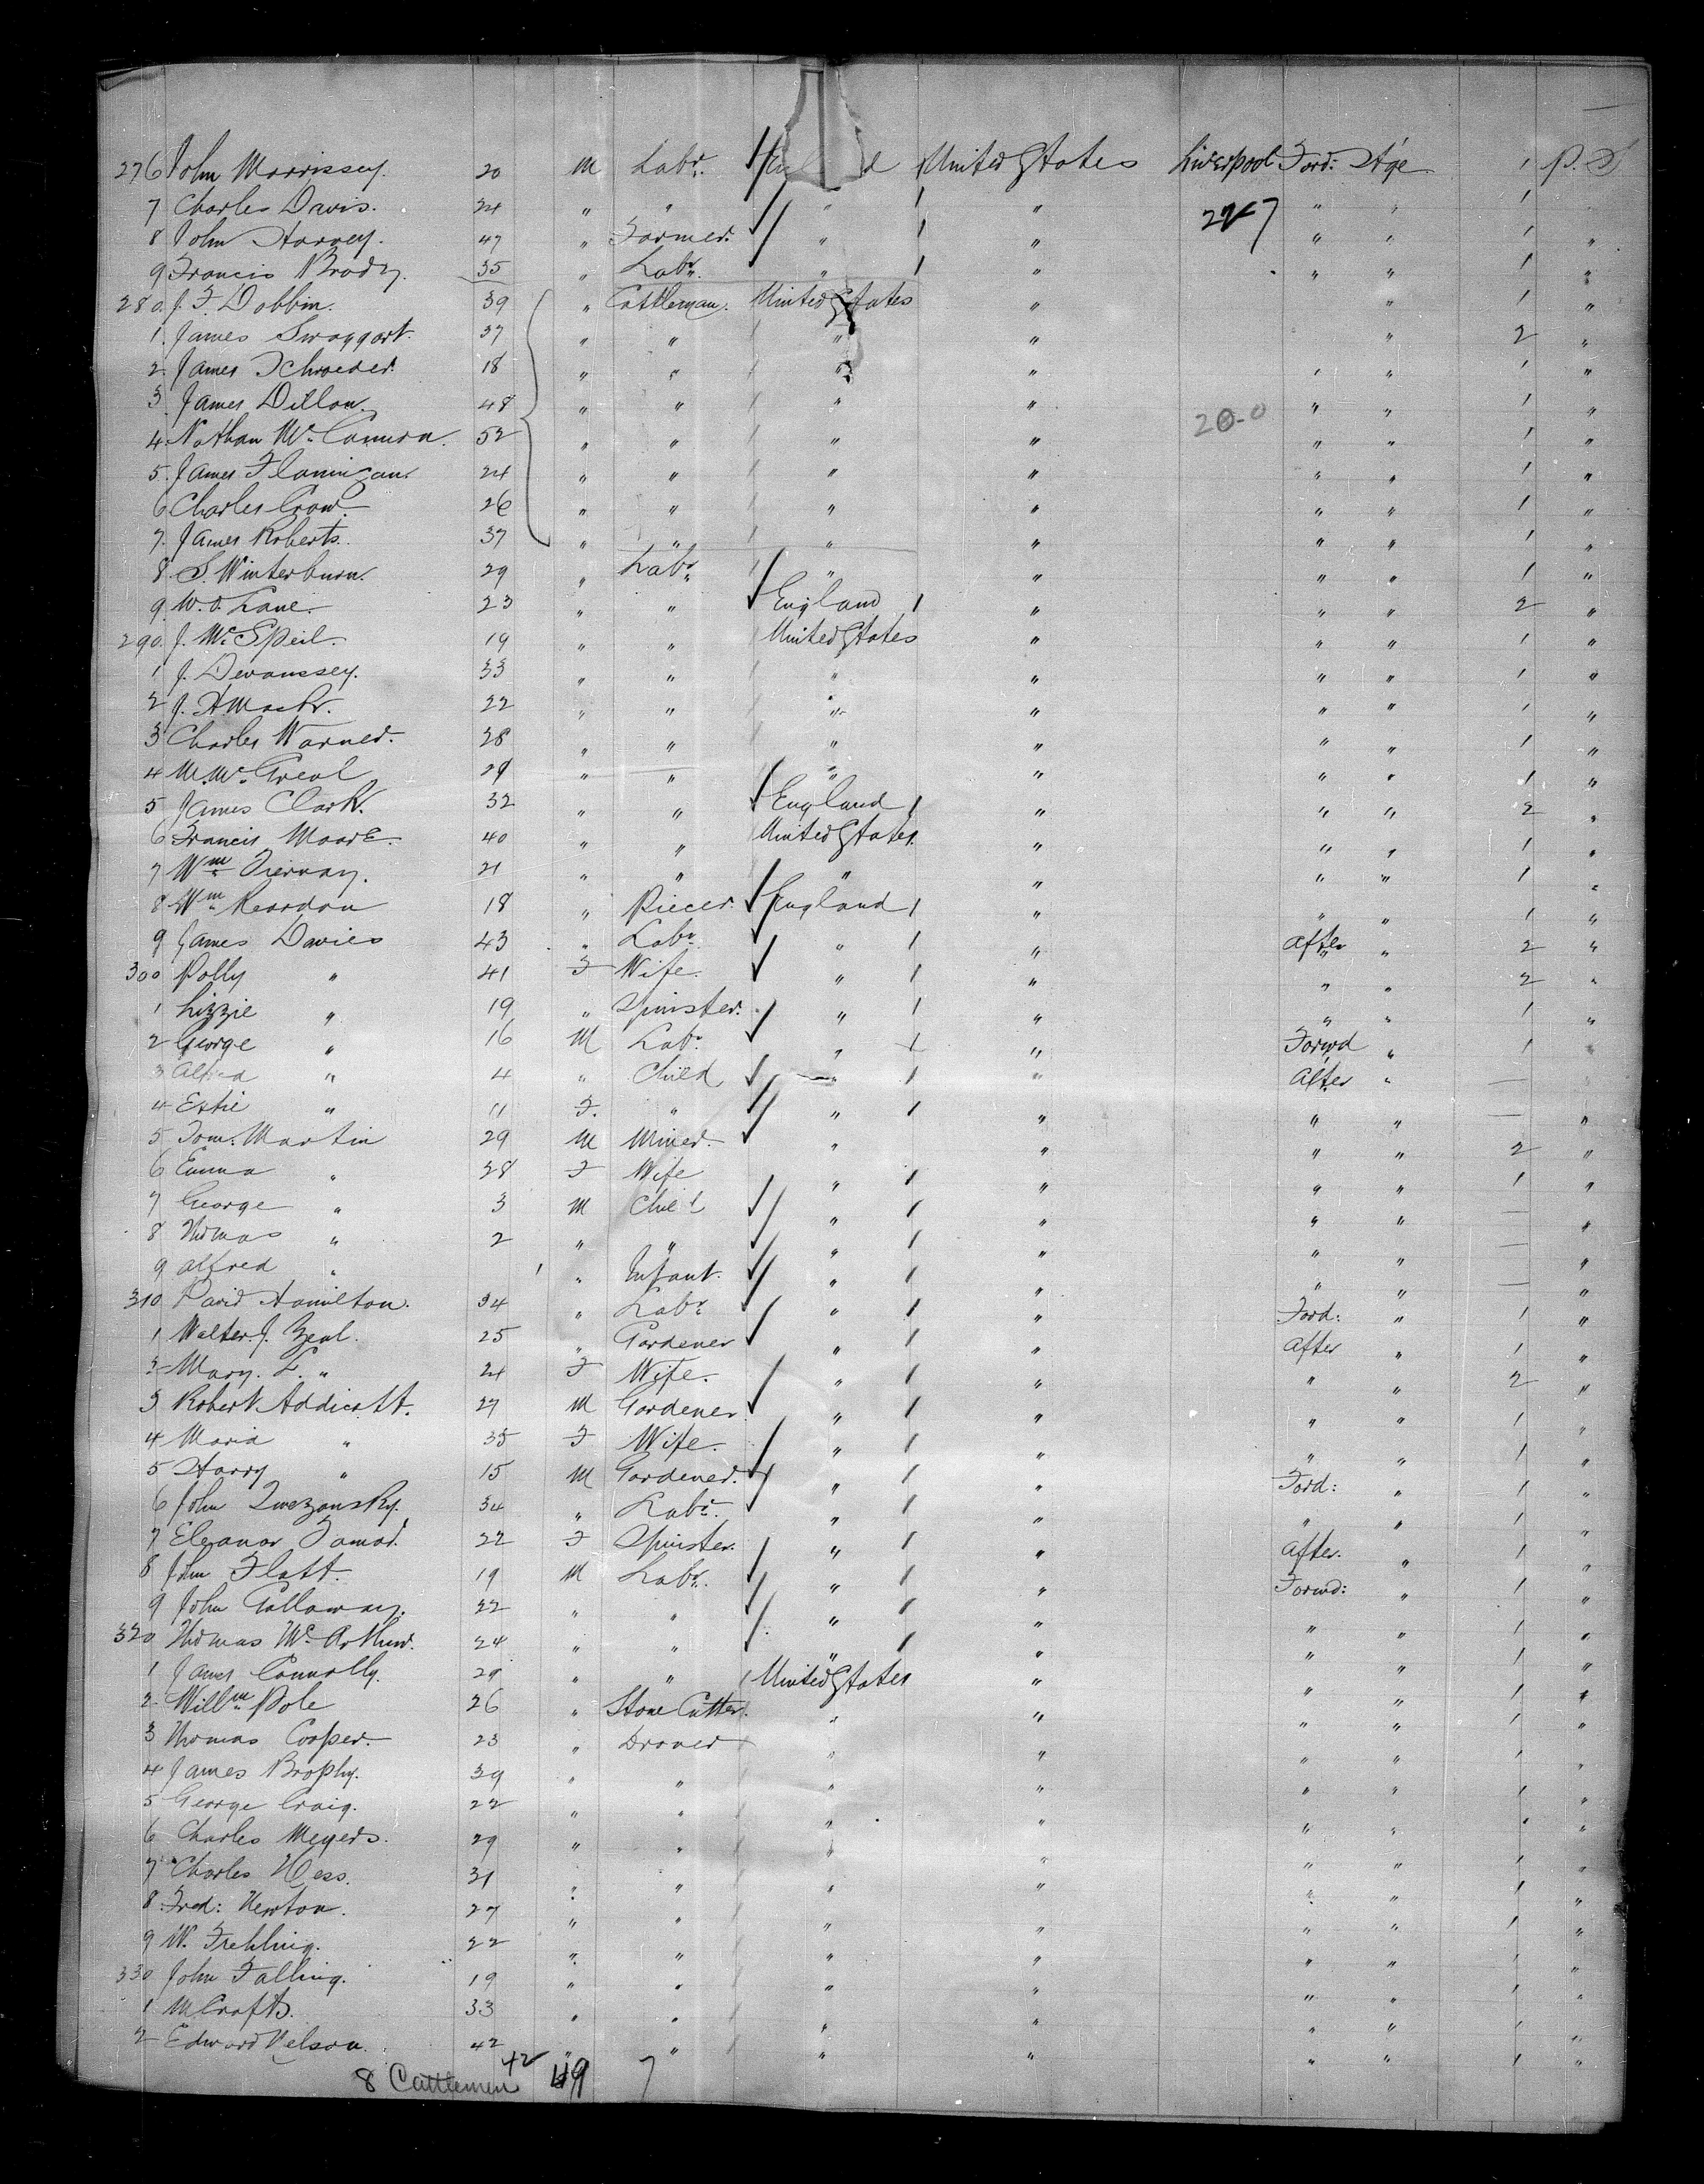 276 John Morrissey. 20 M Labr. England United States Liverpool Ford: St'ge 1 P. S
7 Charles Davis. 24 " " " " 227 " " 1
8 John Harvey. 47 " Farmer. " " " " 1 "
9 Francis Brady. 35 " Labr. " " " " 1 "
280. J. F. Dobbin. 39 " Cattleman. United States " " 1 "
1. James Swaggart. 37 " " " " " 2 "
2. James Schroeder. 18 " " " " " " 1 "
3. James Dillon. 48 " " " " " " 1 "
4. Nathan Mc. Camura. 52 " " " " 20-0 " " 1 "
5. James Flannigan. 24 " " " " " " 1 "
6 Charles Crow. 26 " " " " " " 1 "
7. James Roberts. 37 " " " " " " 1 "
8. S. Winterburn. 29 " Labr. " " " " 1 "
9. W. O. Lane. 23 " " England " " " 2 "
290. J. Mc. Speil. 19 " " United States " " " 1 "
1 J. Devanssey. 33 " " " " " " 1 "
2 J. H. Mack. 22 " " " " " " 1 "
3 Charles Warner. 28 " " " " " " 1 "
4 M. Mc. Greal 29 " " " " " " 1 "
5 James Clark. 32 " " England " " " 2 "
6 Francis Moore. 40 " " United States " " " 1 "
7 Wm Tiernay. 21 " " " " " " 1 "
8 Wm Reardon 18 " Piecer. England " " " 1 "
9 James Davies 43 " Labr. " " After " 2 "
300 Polly " 41 F Wife. " " " " 2 "
1 Lizzie " 19 " Spinster. " " " " 1 "
2 George " 16 M Labr. " " Forwd " 1 "
3 Alfred " 4 " Child " " After " —
4 Ettie " 11 F. " " " " " — "
5 Tom. Martin 29 M Miner. " " " " 2 "
6 Emma " 28 F Wife " " " " 1 "
7 George " 3 M Child " " " " — "
8 Thomas " 2 " " " " " " — "
9 Alfred " 1 " Infant. " " " " — "
310 David Hamilton. 34 " Labr. " " Ford: " 1 "
1 Walter. J. Zeal. 25 " Gardener " " After " 1 "
2 Mary. L. " 24 F Wife. " " " " 2 "
3 Robert Addicott. 27 M Gardener " " " " 1 "
4 Maria " 35 F Wife. " " " " 1 "
5 Harry " 15 M Gardener. " " Ford: " 1 "
6 John Zwezansky. 34 " Labr. " " " " 1 "
7 Eleanor Famar. 22 F Spinster. " " After. " 1 "
8 John Flatt. 19 M Labr. " " Forwd: " 1 "
9 John Galloway. 22 " " " " " " 1 "
320 Thomas Mc. Arthur. 24 " " " " " " 1 "
1 James Connolly. 29 " " United States " " " 1 "
2. Willm Pole 26 " Stone Cutter. " " " " 1 "
3 Thomas Cooper. 23 " Drover " " " " 1 "
4 James Brophy. 39 " " " " " " 1 "
5 George Craig. 22 " " " " " " 1 "
6 Charles Meyers. 29 " " " " " " 1 "
7 Charles Hess. 31 " " " " " " 1 "
8 Fred: Newton. 27 " " " " " " 1 "
9 W. Frehling. 22 " " " " " " 1 "
330 John Falling. 19 " " " " " " 1 "
1 M Crafts. 33 " " " " " " 1 "
2 Edward Nelson. 42 " " " " " " 1 "
8 Cattlemen 42 49 7